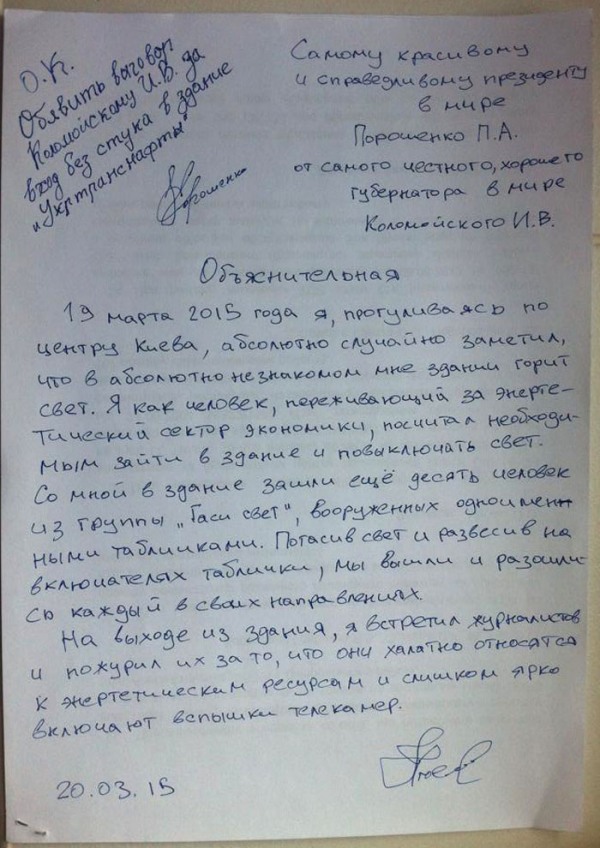 О.К.
Обявить выговор
Коломойскому И.В. за
вход без стука в здание
„Укртранснафты"
Порошенко
Самому красивому
и справедливому президенту
в мире
Порошенко П.А.
от самого честного, хорошего
губернатора в мире
Коломойского И.В.
Объяснительная
19 марта 2015 года я, прогуливаясь по
центру Киева, абсолютно случайно заметил,
что в абсолютно незнакомом мне здании горит
свет. Я как человек, переживающий за энерге-
тический сектор экономики, посчитал необходи-
мым зайти в здание и повыключать свет.
Со мной в здание зашли ещё десять человек
из группы „Гаси свет", вооруженных одноимен
ными табличками. Погасив свет и развесив на
включателях таблички, мы вышли и разошли-
сь каждый в своих направлениях.
На выходе из здания, я встретил журналистов
и пожурил их за то, что они халатно относятся
к энергетическим ресурсам и слишком ярко
включают вспышки телекамер.
20.03.15